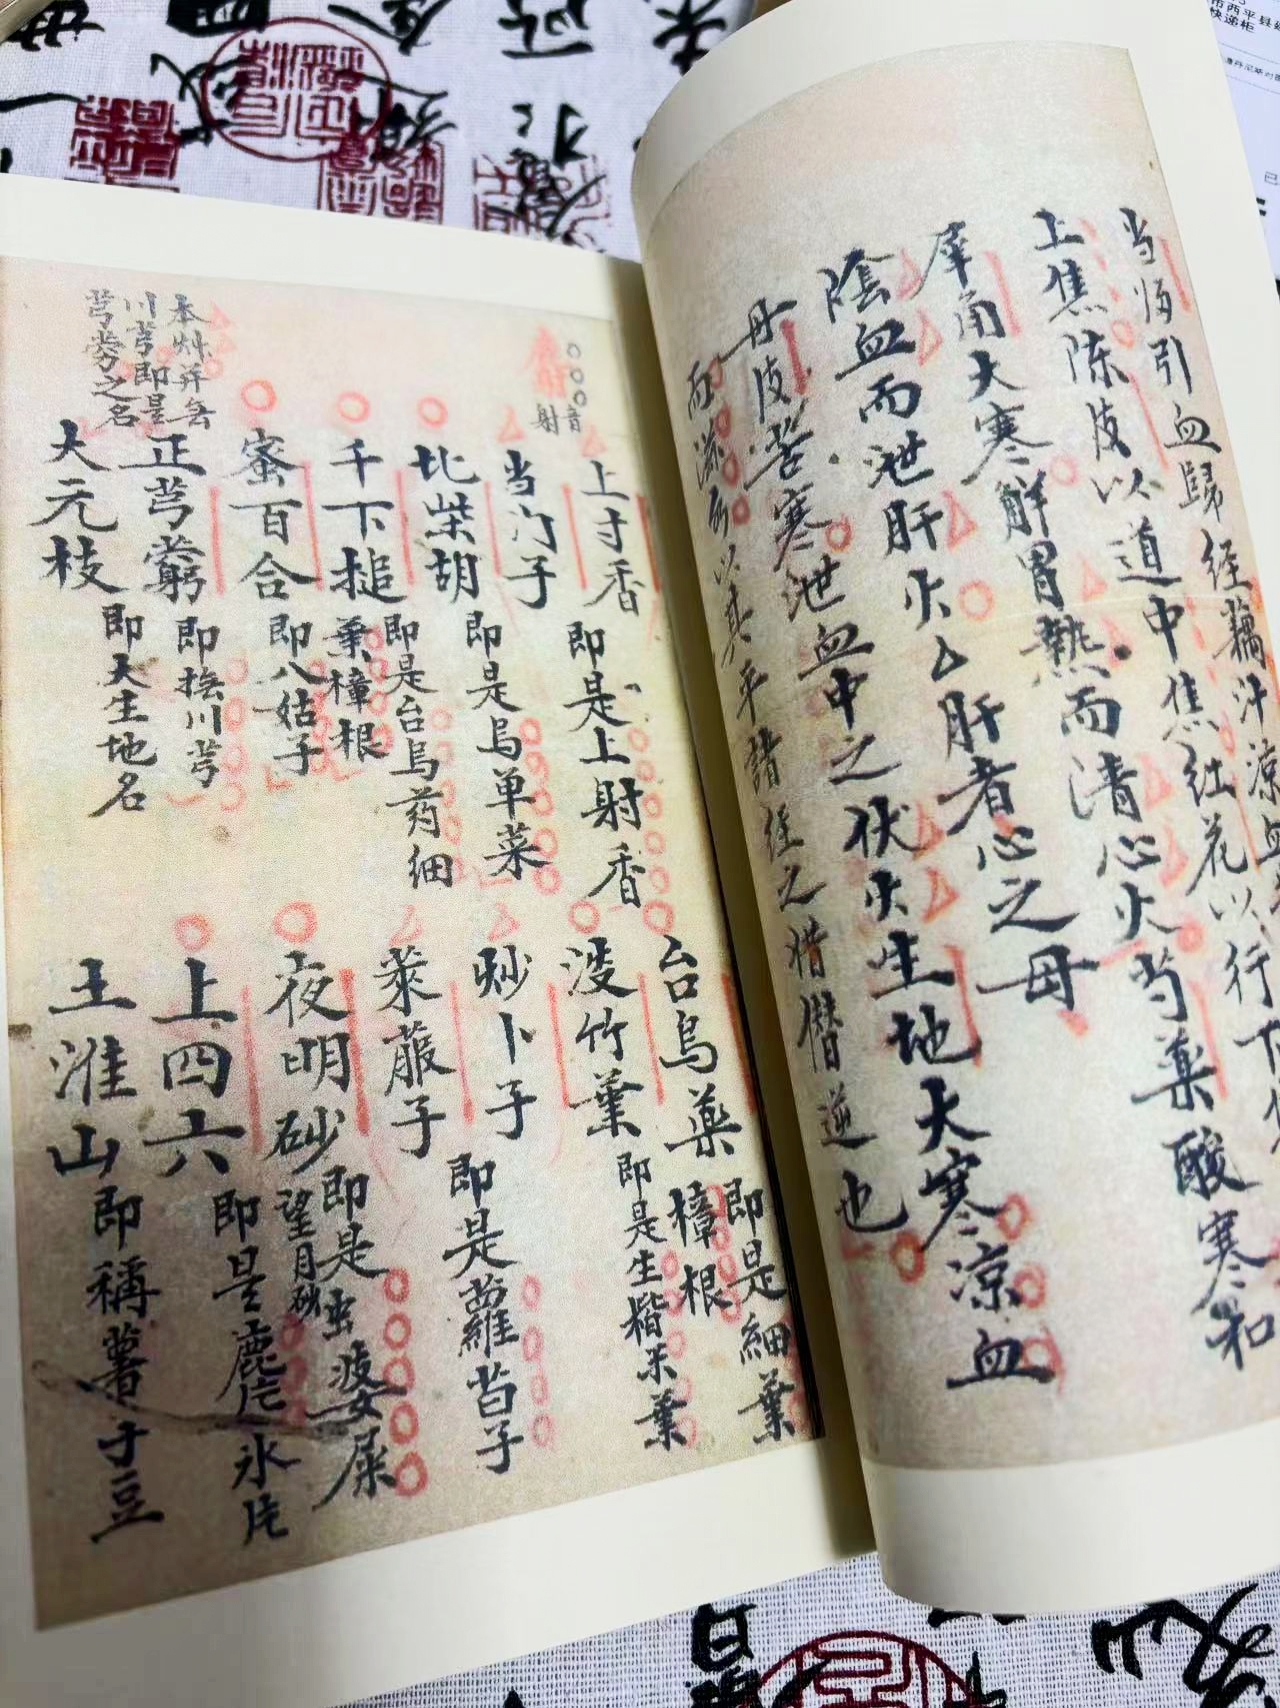 当归引血歸经藕汁凉血
上焦陈皮以道中焦红花以行下焦
犀角大寒解胃熱而清心火芍藥酸寒和
陰血而泄肝火肝者心之母
丹皮苦寒泄血中之伏火生地大寒凉血
而滋所以其平諸经之惜僭逆也
音
射
上寸香 即是上射香
当门子
北柴胡 即是烏单菜
千下搥 即是台烏药细
葉樟根
蜜百合 即八姑子
正芎藭 即撫川芎
大元枝 即大生地名
本艸并无
川芎即是
芎藭之名
台烏藥 即是細葉
樟根
淡竹葉 即是生楷米葉
炒卜子 即是蘿苩子
萊菔子
夜明砂 即是虫婆屎
望月砂
上四六 即是鹿片氷片
土淮山 即稱薯子豆
市西平县
快递柜